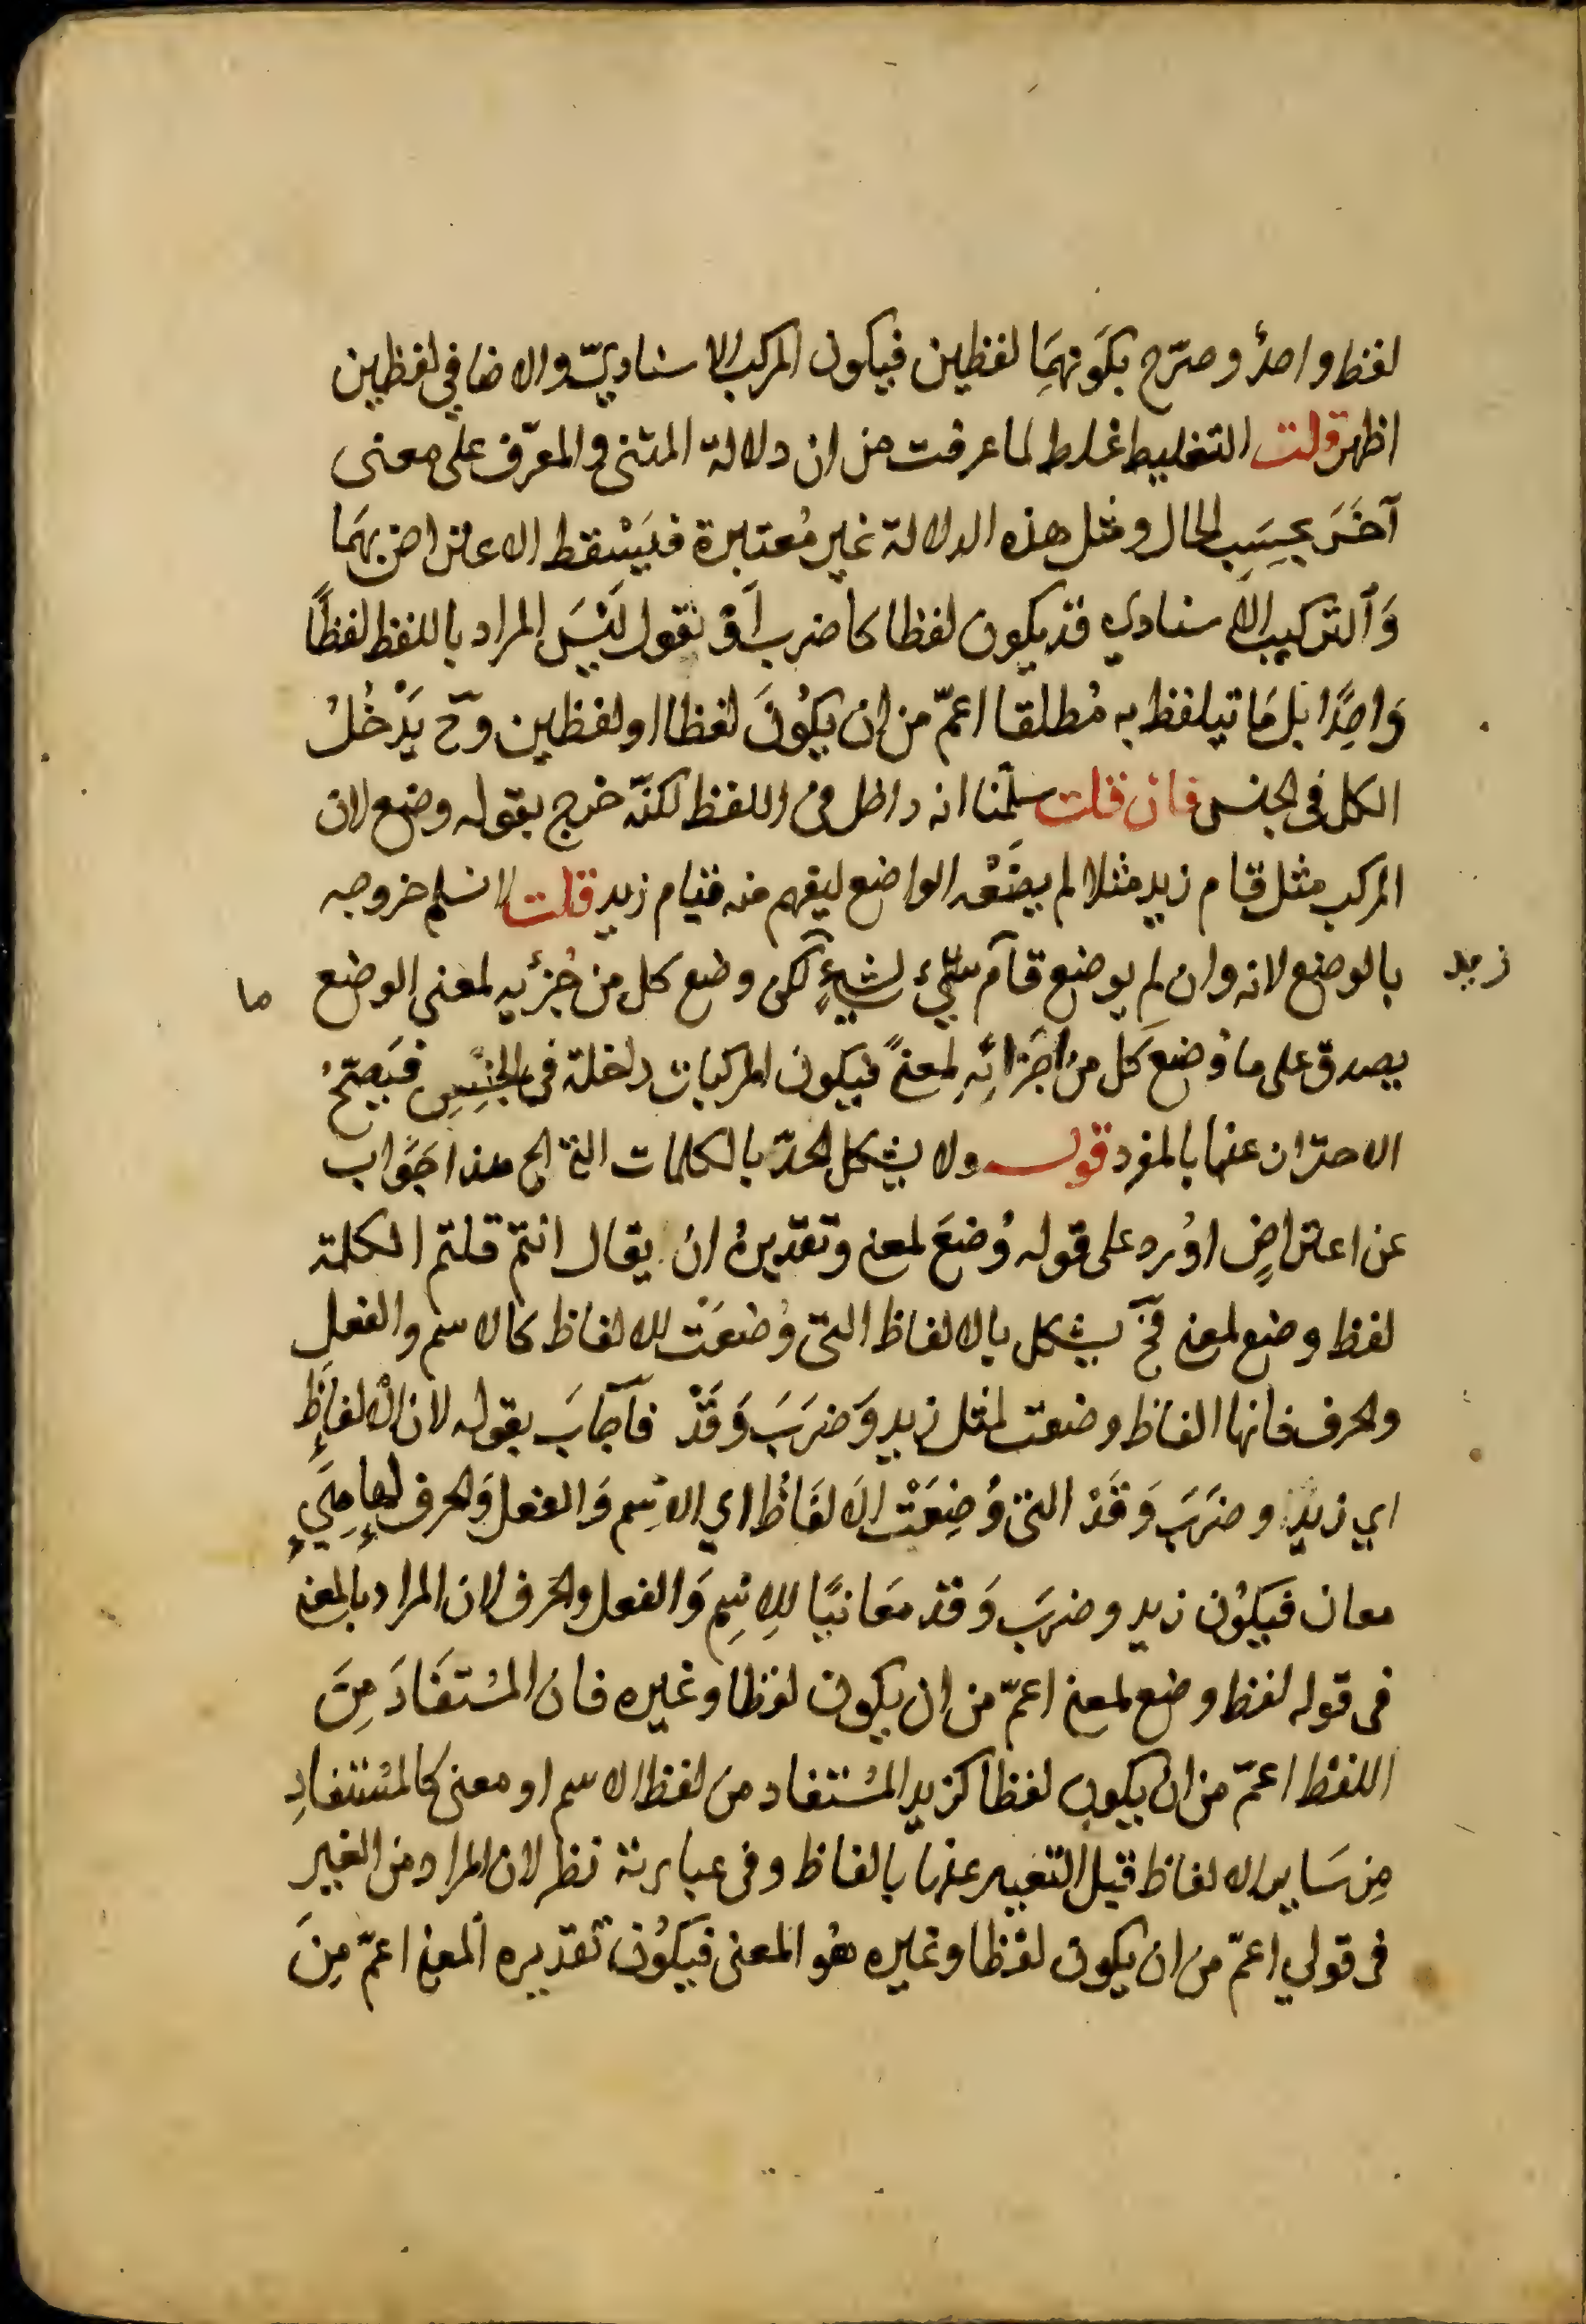 لفظ واحدٌ وصرّح بكَونهمَا لفظين فيكون المركب الاسناديّ والاضافي لفظين
اظهر قلت التغليط غلط لما عرفت من ان دلالة المثنى والمعرّف على معنى
آخَرَ بحسَبِ الحال ومثل هذه الدلالة غير مُعتبرة فيَسْقط الاعتراض بهمَا
وَالتركيب الاسنادي قد يكون لفظا كاضرب اَوْ نقول لَيْسَ المراد باللفظ لفظًا
وَاحِدًا بل مَا تيلفظ به مُطلقا اعمّ من ان يكُونَ لفظا او لفظين وحّ يَدْخُلُ
الكل فى الجنس فان قلت سلّمنا انه داخل فى اللفظ لكنّه خرج بقوله وضع لان
المركب مثل قام زيد مثلا لم يضَعْه الواضع ليفهم منه قيام زيد قلت لا نسلم خروجه
بالوضع لانه وان لم يوضع قام شيء لشيءٍ لكن وضع كل من جُزئيه لمعنى الوضع
زيد
ما
يصدق على ما وُضع كل من اجَزائِهِ لمعنًى فيكون المركبات داخلة فى الجنسِ فيَصحّ
الاحتراز عنها بالمفرد قوله ولا يشكل الحدّ بالكلمات التى الخ هذا جَوَاب
عن اعتراضٍ اوُرد على قوله وُضعَ لمعنى وتقديرهُ ان يقال انتم قلتم الكلمة
لفظ وضع لمعنى فحّ يشكل بالالفاظ التى وُضعَت للالفاظ كالاسم والفعلِ
والحرف فانها الفاظ وضعت لمثل زيد وَضرَبَ وَقَدْ فاَجَابَ بقوله لان الالفاظ
اي زيد وضرَبَ وَقَدْ التى وُضِعَتْ الالفَاظُ اي الاسِم وَالفعل وَالحرف لها هِىَ
معان فيَكوُن زيد وضرَبَ وَقد معَانيًا للاِسِم وَالفعل والحَرف لان المراد بالمعنى
فى قوله لفظ وضع لمعنى اعمّ من ان يكون لفظا وغيره فان المسْتفَادَ مِنَ
اللفظ اعمّ من ان يكون لفظا كزيد المسْتفاد من لفظ الاسم او معنى كالمسْتفادِ
مِن سَاير الالفاظ قيل التعبير عنها بالفاظ وفى عبارتة نظر لان المراد من الغير
فى قولي اعمّ من ان يكون لفظا وغيره هُو المعنى فيكوُن تقديره المعنى اعمّ مِنَ